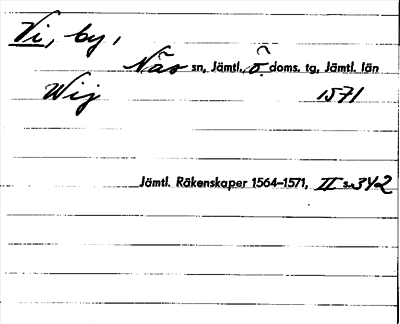 Vi, by,
Näs sn, Jämtl. ö. doms. tg, Jämtl. län
Wij 1571
Jämtl. Räkenskaper 1564–1571, II s. 342